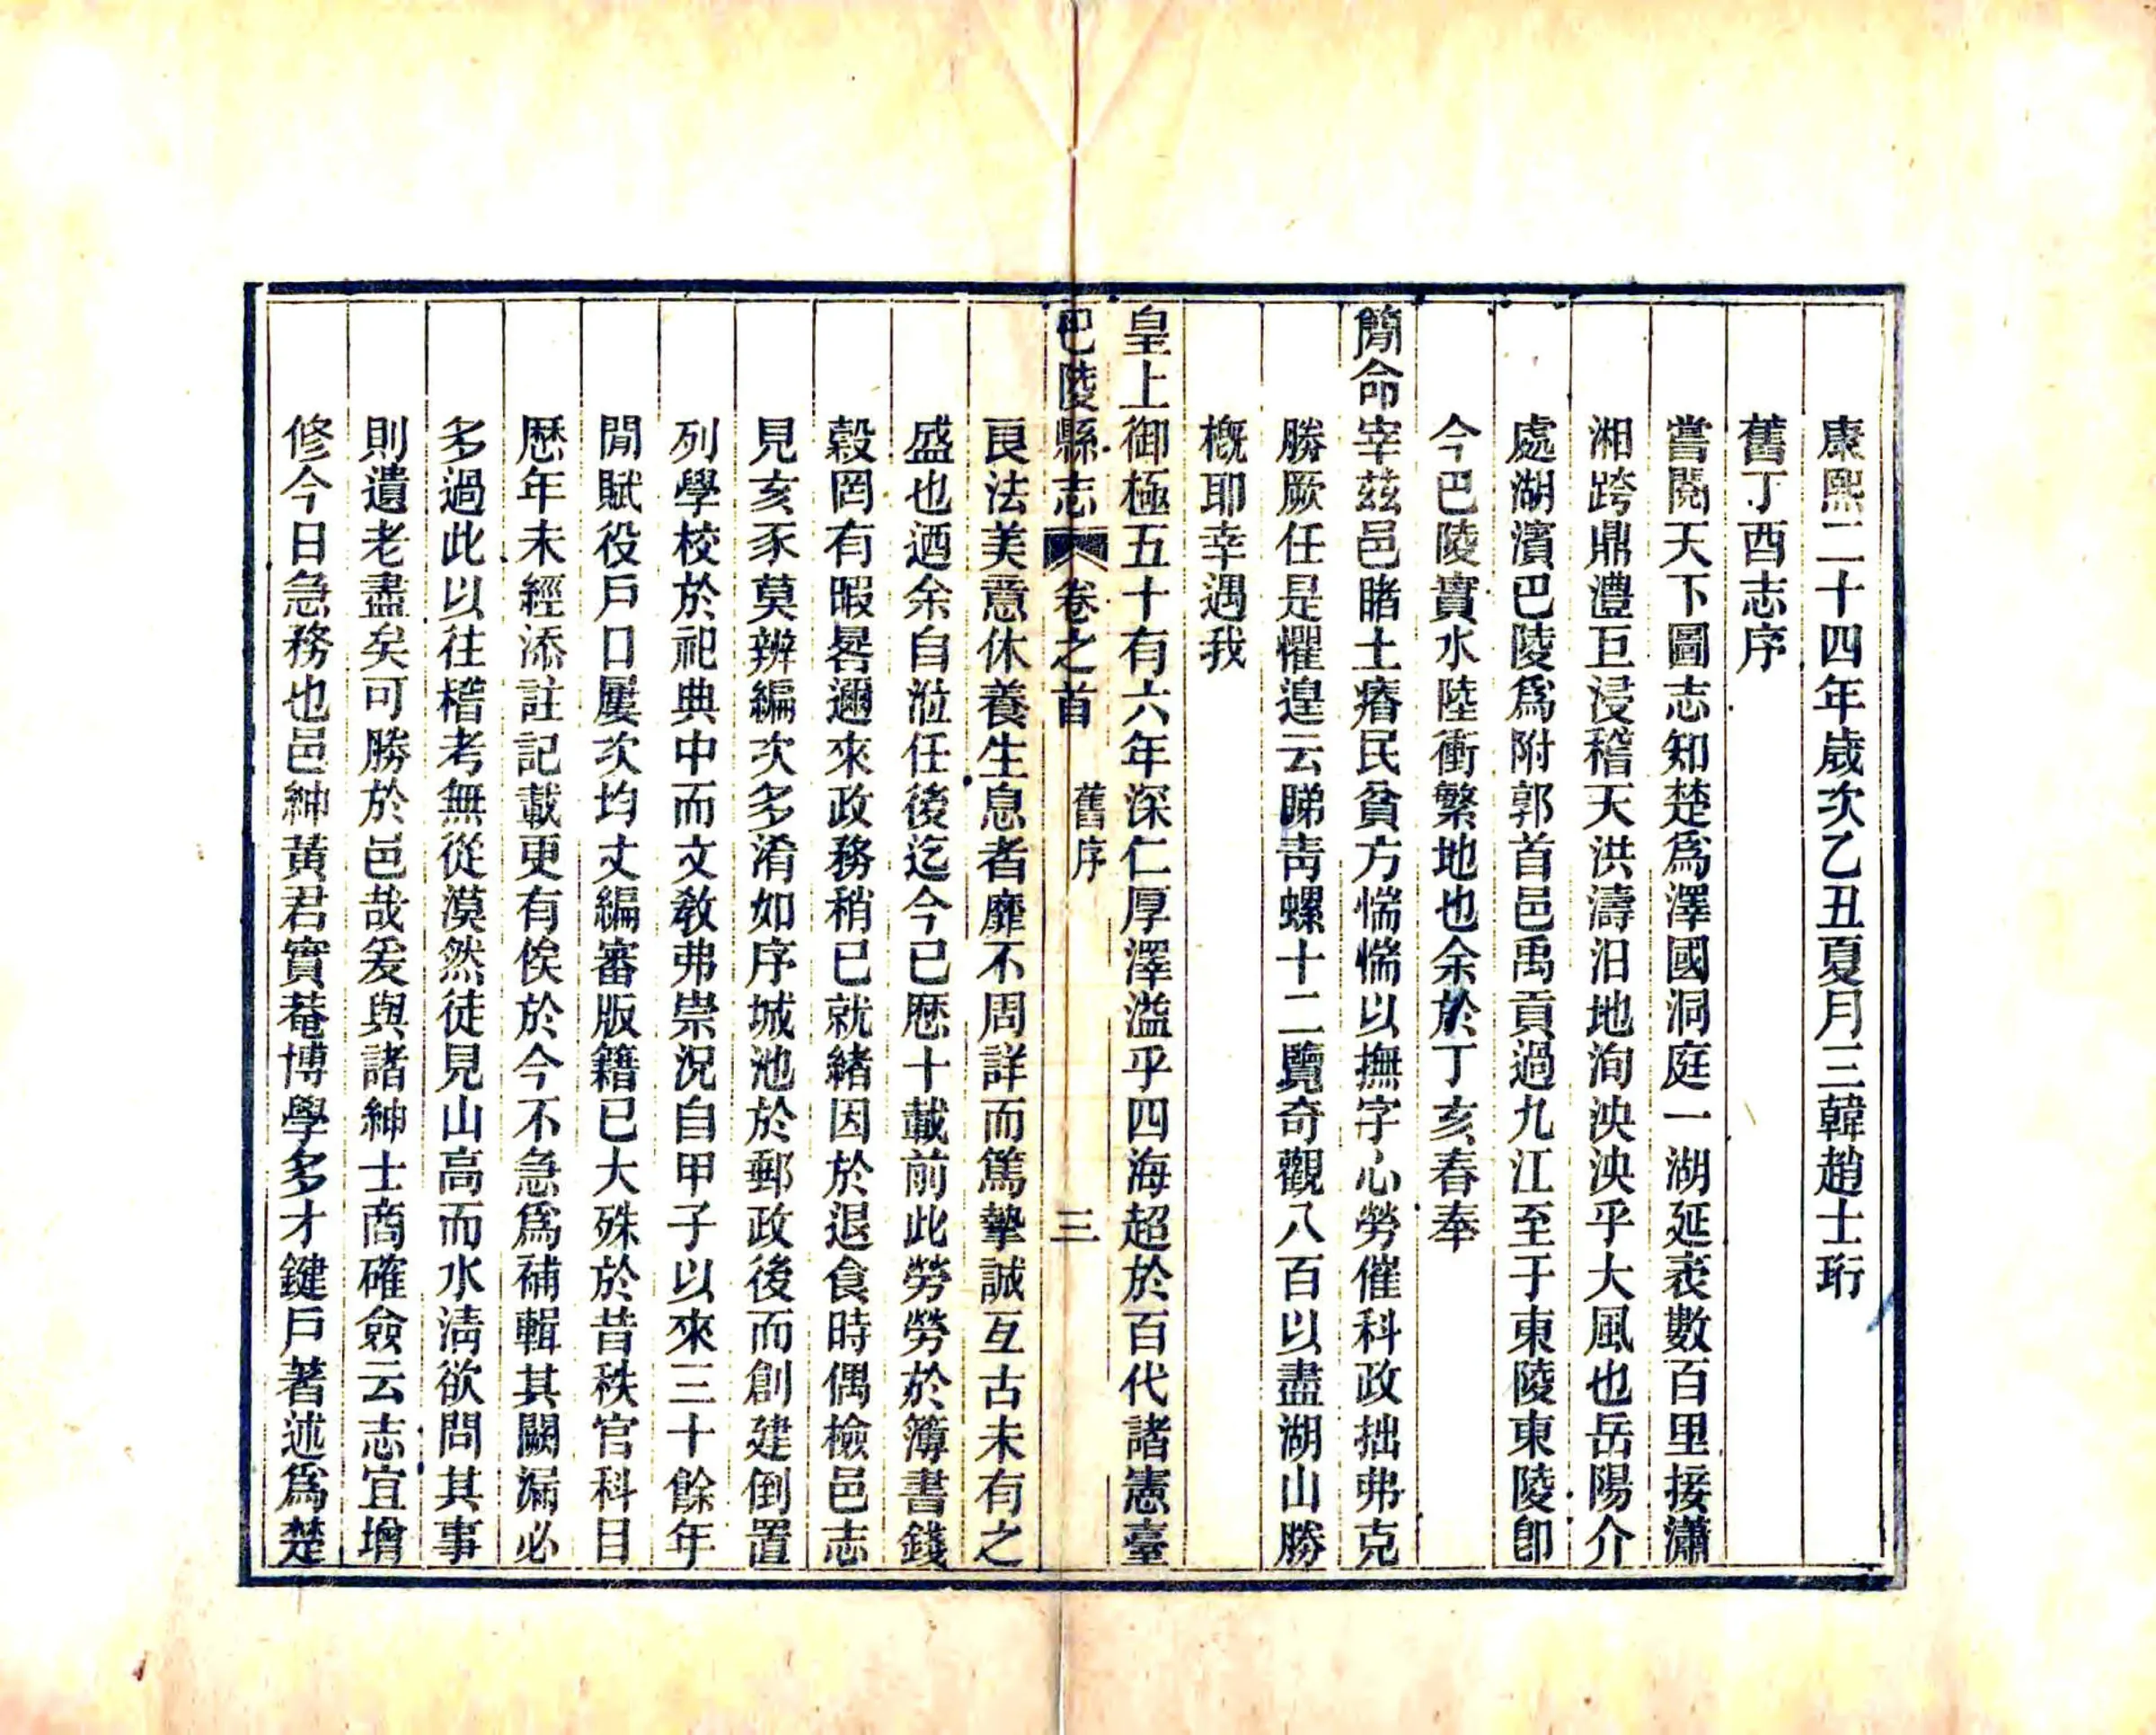 康熙二十四年歲次乙丑夏月三韓趙士珩
舊丁酉志序
嘗閱天下圖志知楚爲澤國洞庭一湖延袤數百里接瀟
湘跨鼎澧巨浸稽天洪濤汨地洵泱泱乎大風也岳陽介
處湖濱巴陵爲附郭首邑禹貢過九江至于東陵東陵卽
今巴陵實水陸衝繁地也余於丁亥春奉
簡命宰茲邑睹土瘠民貧方惴惴以撫字心勞催科政拙弗克
勝厥任是懼遑云睇靑螺十二覽奇觀八百以盡湖山勝
槪耶幸遇我
皇上御極五十有六年深仁厚澤溢乎四海超於百代諸憲臺
巴陵縣志 卷之首 舊序 三
良法美意休養生息者靡不周詳而篤摯誠亙古未有之
盛也迺余自涖任後迄今已歷十載前此勞勞於簿書錢
穀罔有暇晷邇來政務稍已就緒因於退食時偶檢邑志
見亥豕莫辨編次多淆如序城池於郵政後而創建倒置
列學校於祀典中而文敎弗崇況自甲子以來三十餘年
閒賦役戶口屢次均丈編審版籍已大殊於昔秩官科目
歷年未經添註記載更有俟於今不急爲補輯其闕漏必
多過此以往稽考無從漠然徒見山高而水淸欲問其事
則遺老盡矣可勝於邑哉爰與諸紳士商確僉云志宜增
修今日急務也邑紳黃君實菴博學多才鍵戶著述爲楚